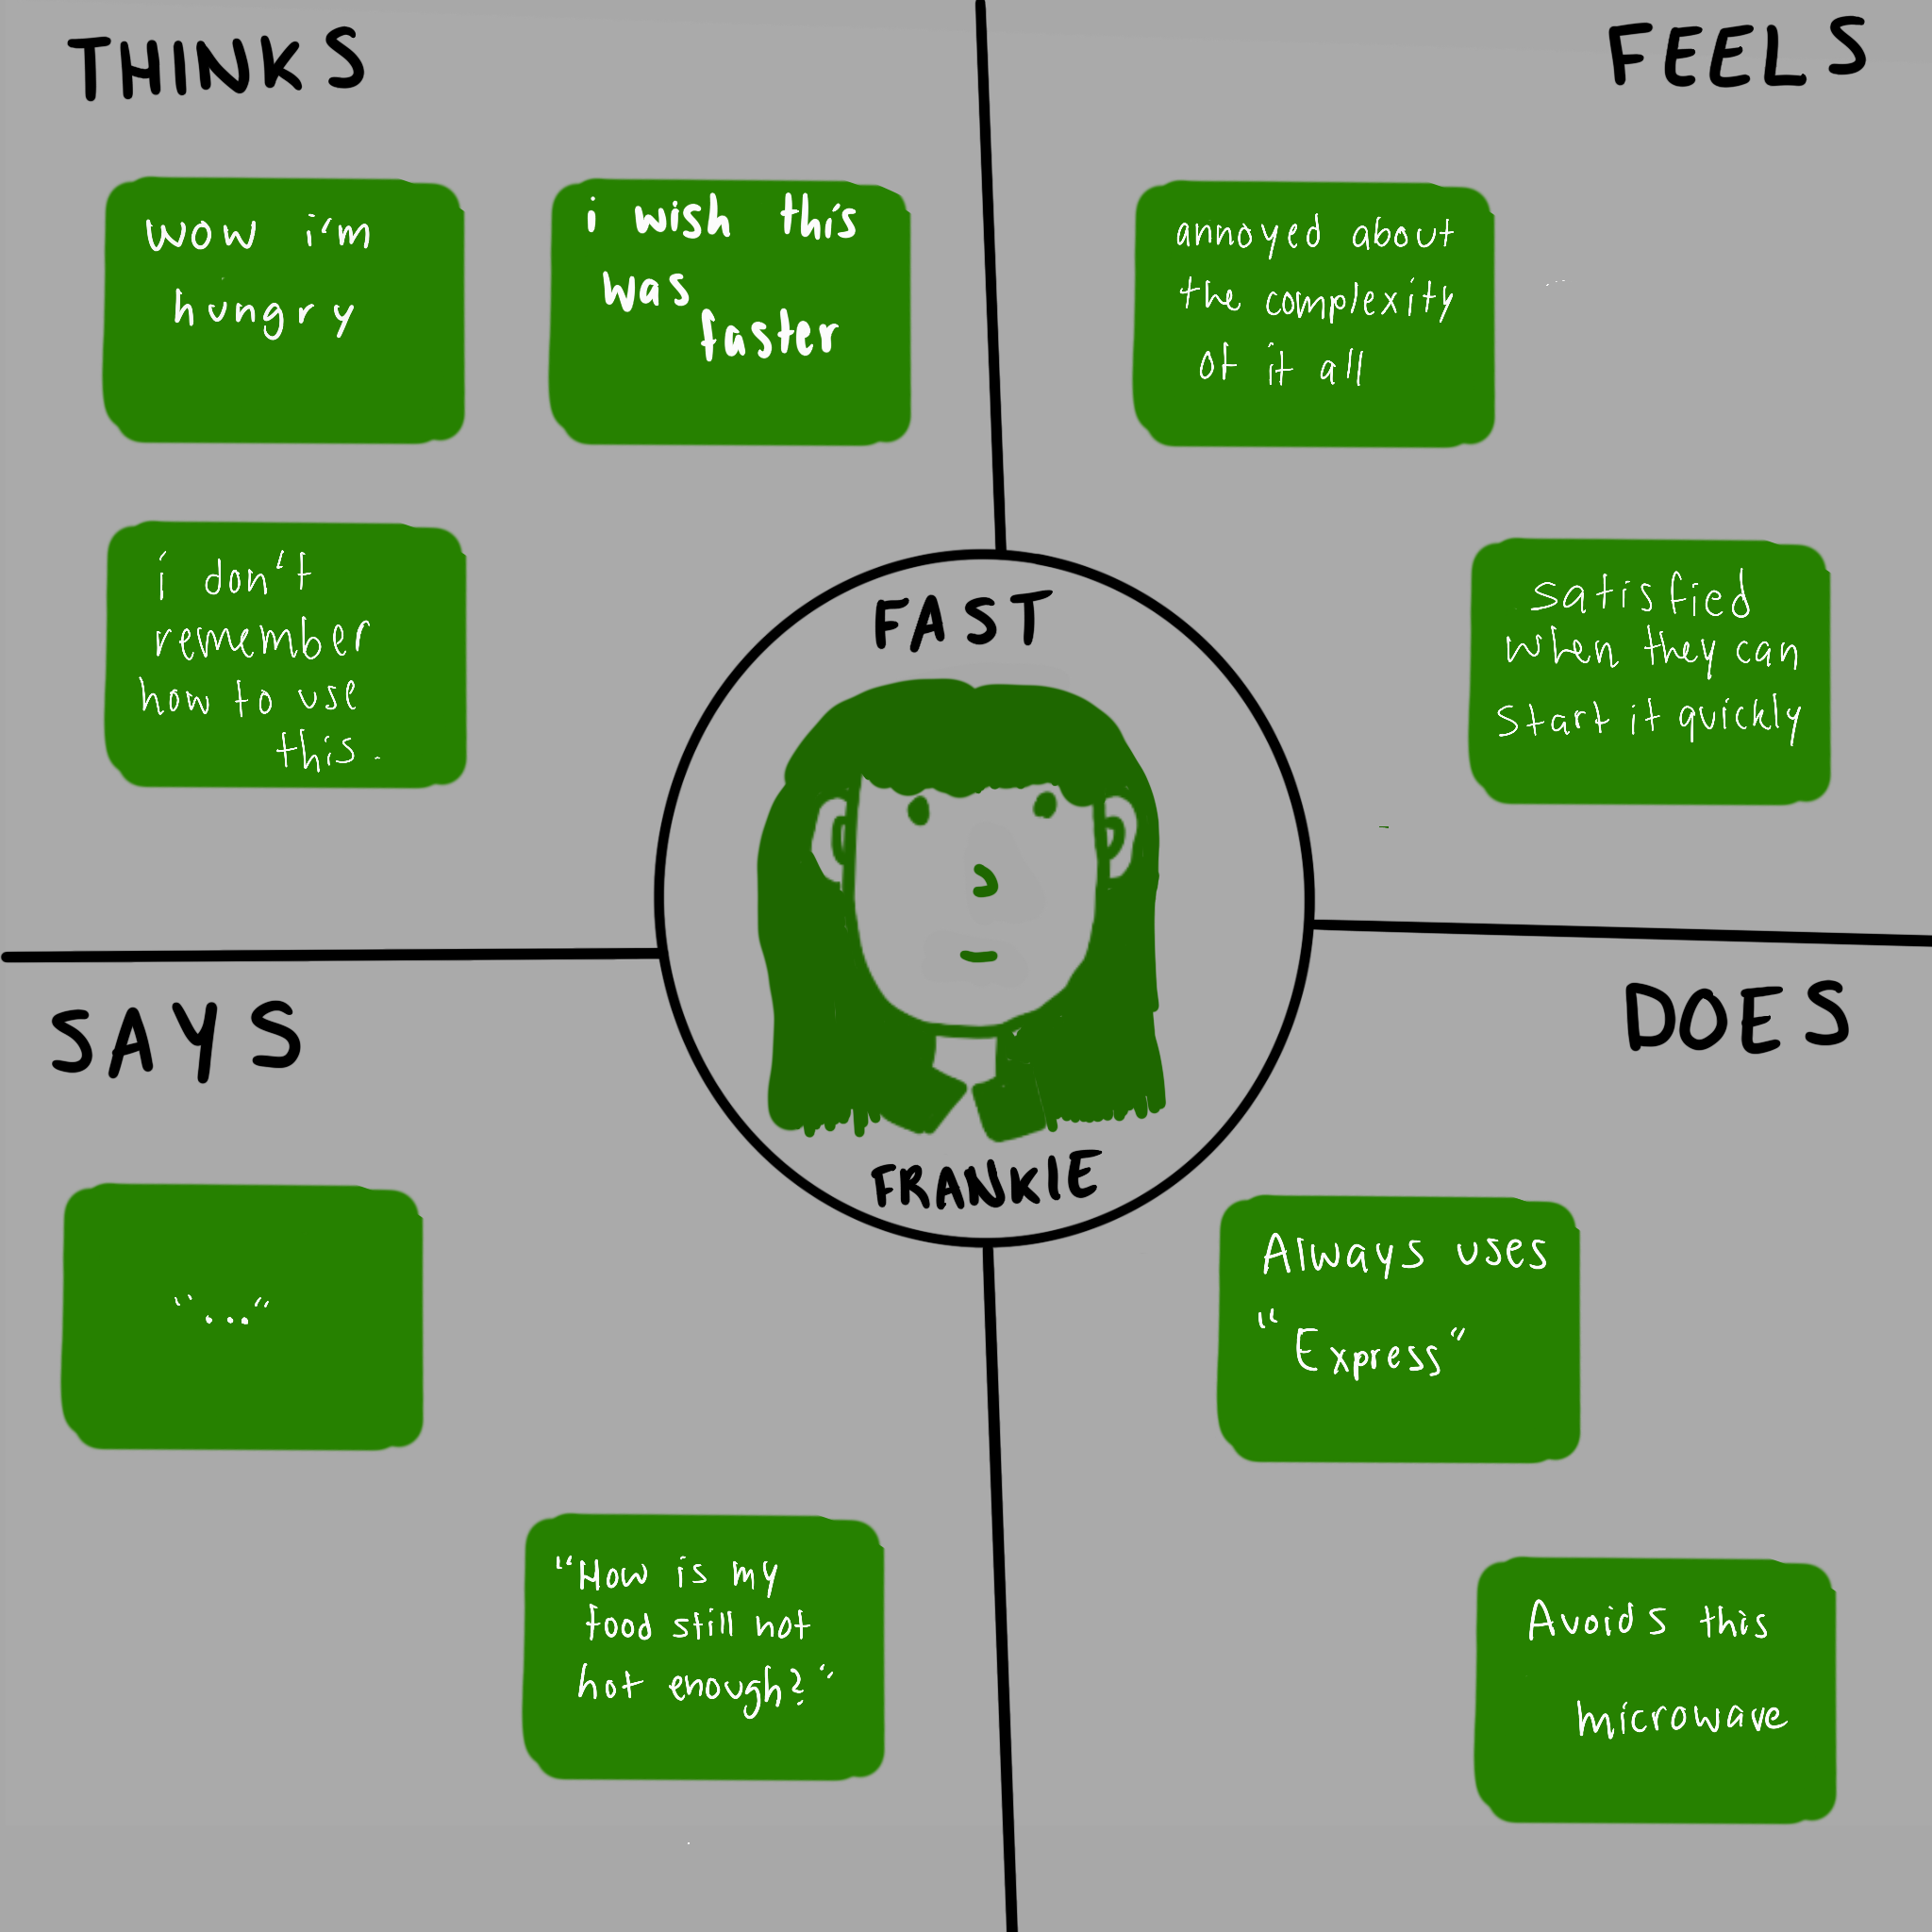 THINKS
wow i'm
hungry
i wish this
was
faster
i don't
remember
how to use
this.
FEELS
annoyed about
the complexity
of it all
satisfied
when they can
start it quickly
FAST
FRANKIE
SAYS
"..."
"How is my
food still not
hot enough?"
DOES
Always uses
"Express"
Avoids this
microwave